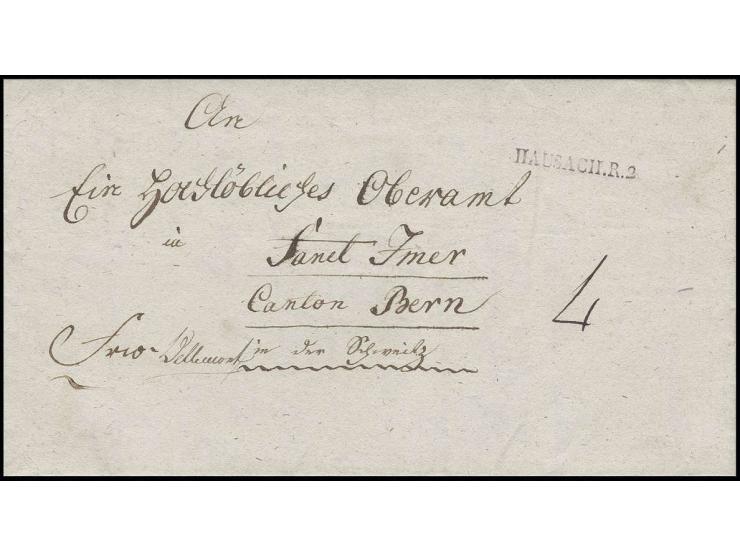 An
HAUSACH.R.2
Ein Hochlöbliches Oberamt
in
Sanct Imer
Canton Bern
4
Frco Dellemont in der Schweitz